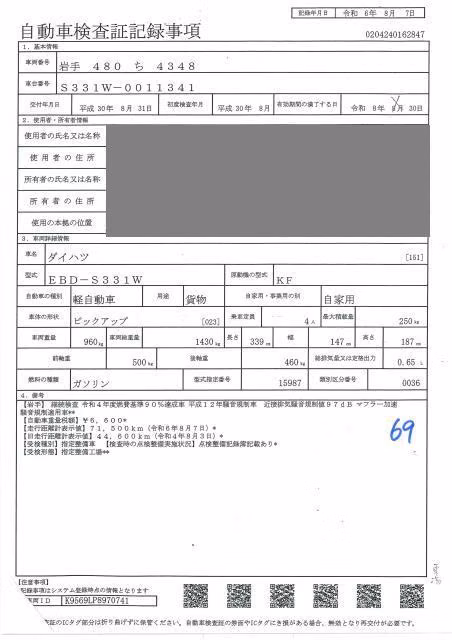 記録年月日 令和 6年 8月 7日
自動車検査証記録事項
0204240162847
1．基本情報
車両番号 岩手 480 ち 4348
車台番号 S331W-0011341
交付年月日 平成30年 8月 31日 初度検査年月 平成30年 8月 有効期間の満了する日 令和 8年 8月 30日
2．使用者・所有者情報
使用者の氏名又は名称
使用者の住所
所有者の氏名又は名称
所有者の住所
使用の本拠の位置
3．車両詳細情報
車名 ダイハツ [151]
型式 EBD-S331W 原動機の型式 KF
自動車の種別 軽自動車 用途 貨物 自家用・事業用の別 自家用
車体の形状 ピックアップ [023] 乗車定員 4人 最大積載量 250kg
車両重量 960kg 車両総重量 1430kg 長さ 339cm 幅 147cm 高さ 187cm
前軸重 500kg 後軸重 460kg 総排気量又は定格出力 0.65L
燃料の種類 ガソリン 型式指定番号 15987 類別区分番号 0036
4．備考
【岩手】 継続検査 令和4年度燃費基準90%達成車 平成12年騒音規制車 近接排気騒音規制値97dB マフラー加速
騒音規制適用車**
【自動車重量税額】¥6,600*
【走行距離計表示値】71,500km（令和6年8月7日）*
【旧走行距離計表示値】44,600km（令和4年8月3日）*
【受検種別】指定整備車 【検査時の点検整備実施状況】点検整備記録簿記載あり*
【受検形態】指定整備工場**
69
【注意事項】
記録事項はシステム登録時点の情報となります
車両ID K9569LP8970741
証のICタグ部分は折り曲げずに保管ください。自動車検査証の券面やICタグにき損がある場合、無効となり再交付が必要です。